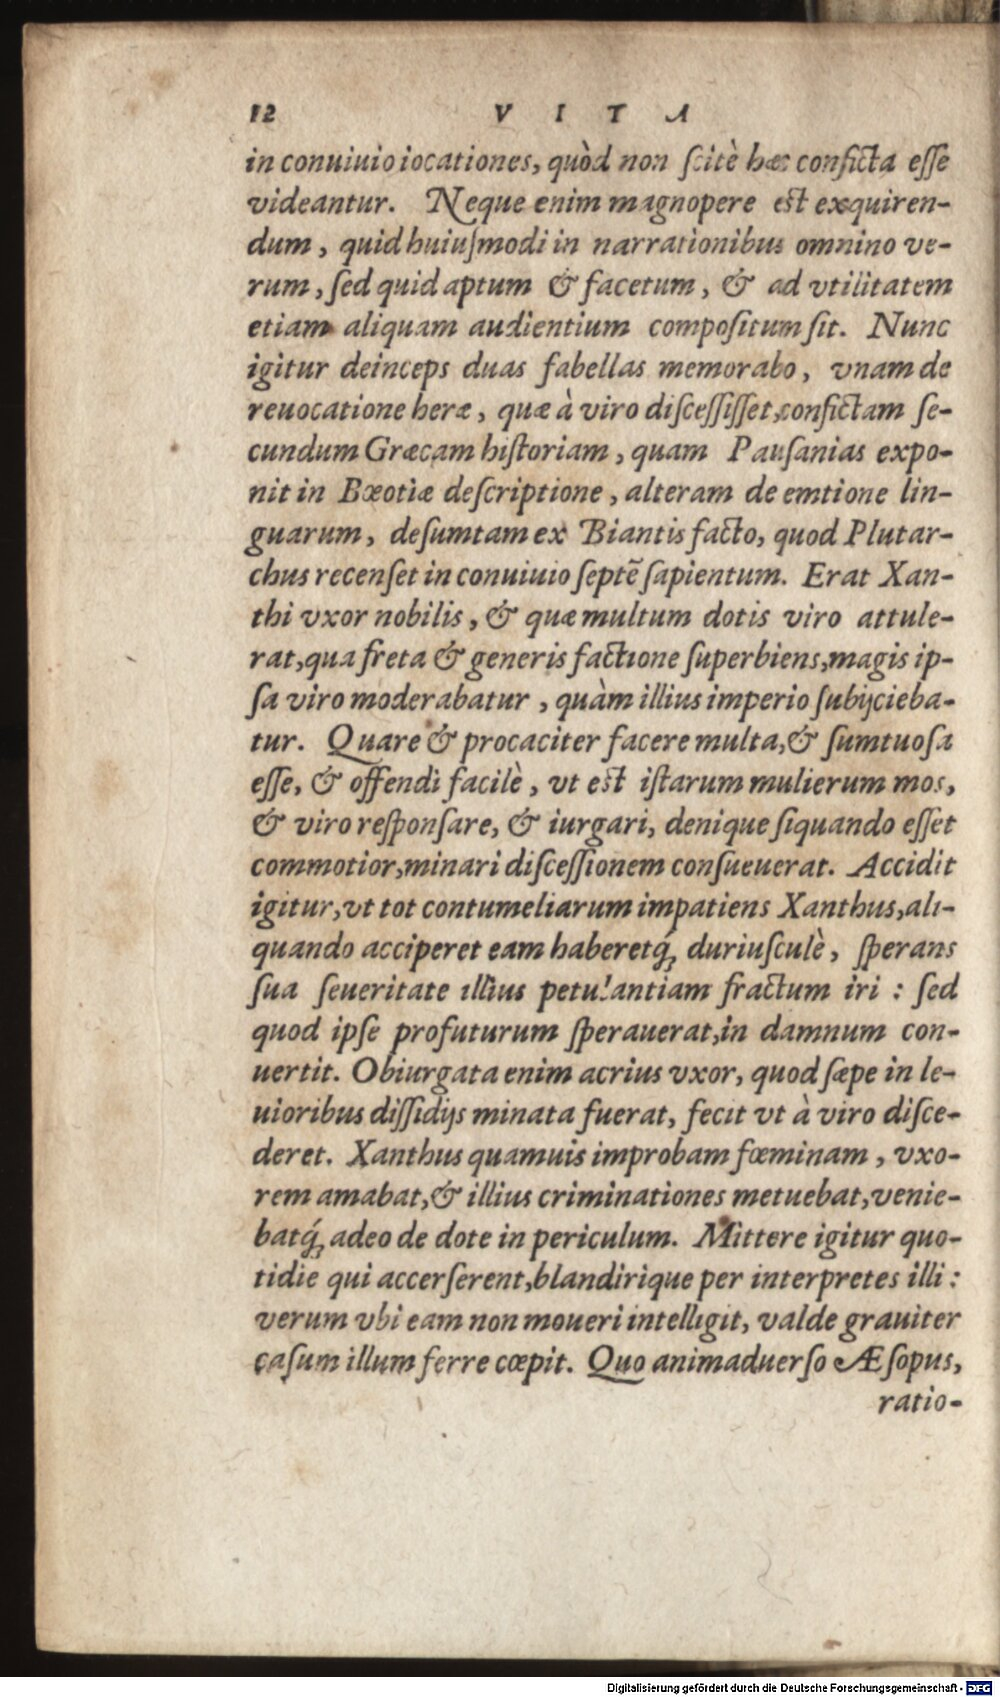 12 VITA
in conuiuio iocationes, quòd non scitè hæc conficta esse
videantur. Neque enim magnopere est exquiren-
dum, quid huiusmodi in narrationibus omnino ve-
rum, sed quid aptum & facetum, & ad vtilitatem
etiam aliquam audientium compositum sit. Nunc
igitur deinceps duas fabellas memorabo, vnam de
reuocatione heræ, quæ à viro discessisset, confictam se-
cundum Græcam historiam, quam Pausanias expo-
nit in Bœotiæ descriptione, alteram de emtione lin-
guarum, desumtam ex Biantis facto, quod Plutar-
chus recenset in conuiuio septē sapientum. Erat Xan-
thi vxor nobilis, & quæ multum dotis viro attule-
rat, qua freta & generis factione superbiens, magis ip-
sa viro moderabatur, quàm illius imperio subijcieba-
tur. Quare & procaciter facere multa, & sumtuosa
esse, & offendi facilè, vt est istarum mulierum mos,
& viro responsare, & iurgari, denique siquando esset
commotior, minari discessionem consueuerat. Accidit
igitur, vt tot contumeliarum impatiens Xanthus, ali-
quando acciperet eam haberetq́; duriusculè, sperans
sua seueritate illius petulantiam fractum iri : sed
quod ipse profuturum sperauerat, in damnum con-
uertit. Obiurgata enim acrius vxor, quod sæpe in le-
uioribus dissidijs minata fuerat, fecit vt à viro disce-
deret. Xanthus quamuis improbam fœminam, vxo-
rem amabat, & illius criminationes metuebat, venie-
batq́; adeo de dote in periculum. Mittere igitur quo-
tidie qui accerserent, blandirique per interpretes illi :
verum vbi eam non moueri intelligit, valde grauiter
casum illum ferre cœpit. Quo animaduerso Æsopus,
ratio-
Digitalisierung gefördert durch die Deutsche Forschungsgemeinschaft - DFG